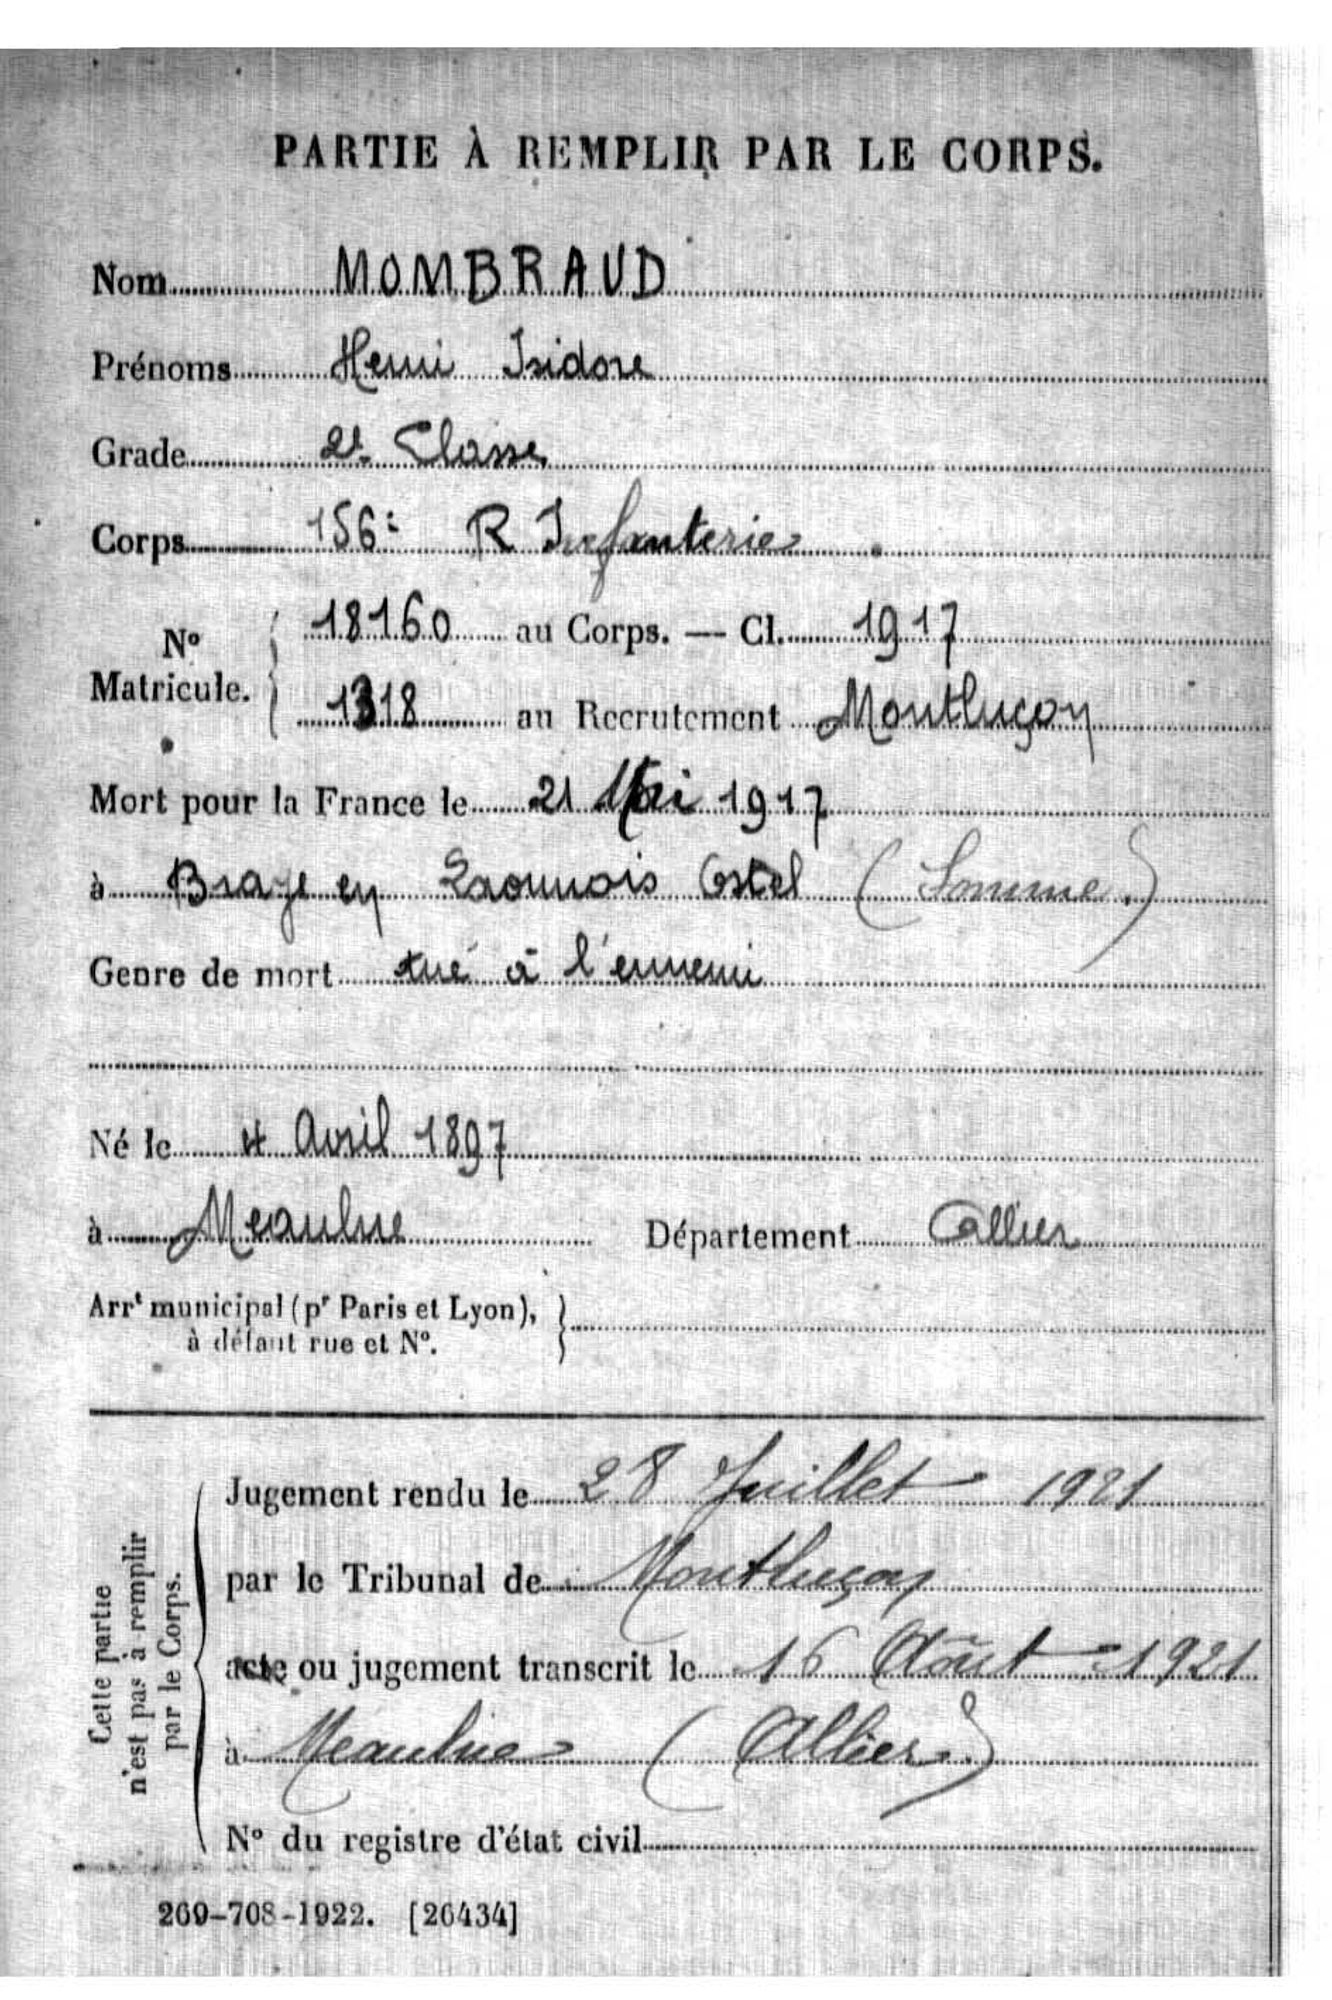 PARTIE À REMPLIR PAR LE CORPS.
Nom MOMBRAUD
Prénoms Henri Isidore
Grade 2e Classe
Corps 156e R Infanterie
N° Matricule. 18160 au Corps. — Cl. 1917
1318 au Recrutement Montluçon
Mort pour la France le 21 Mai 1917
à Braye en Laonnois Ostel (Somme)
Genre de mort tué à l'ennemi
Né le 4 Avril 1897
à Meaulne Département Allier
Arrt municipal (pr Paris et Lyon),
à défaut rue et N°.
Cette partie
n'est pas à remplir
par le Corps.
Jugement rendu le 28 Juillet 1921
par le Tribunal de Montluçon
acte ou jugement transcrit le 16 Août 1921
à Meaulne (Allier)
N° du registre d'état civil
269-708-1922. [26434]